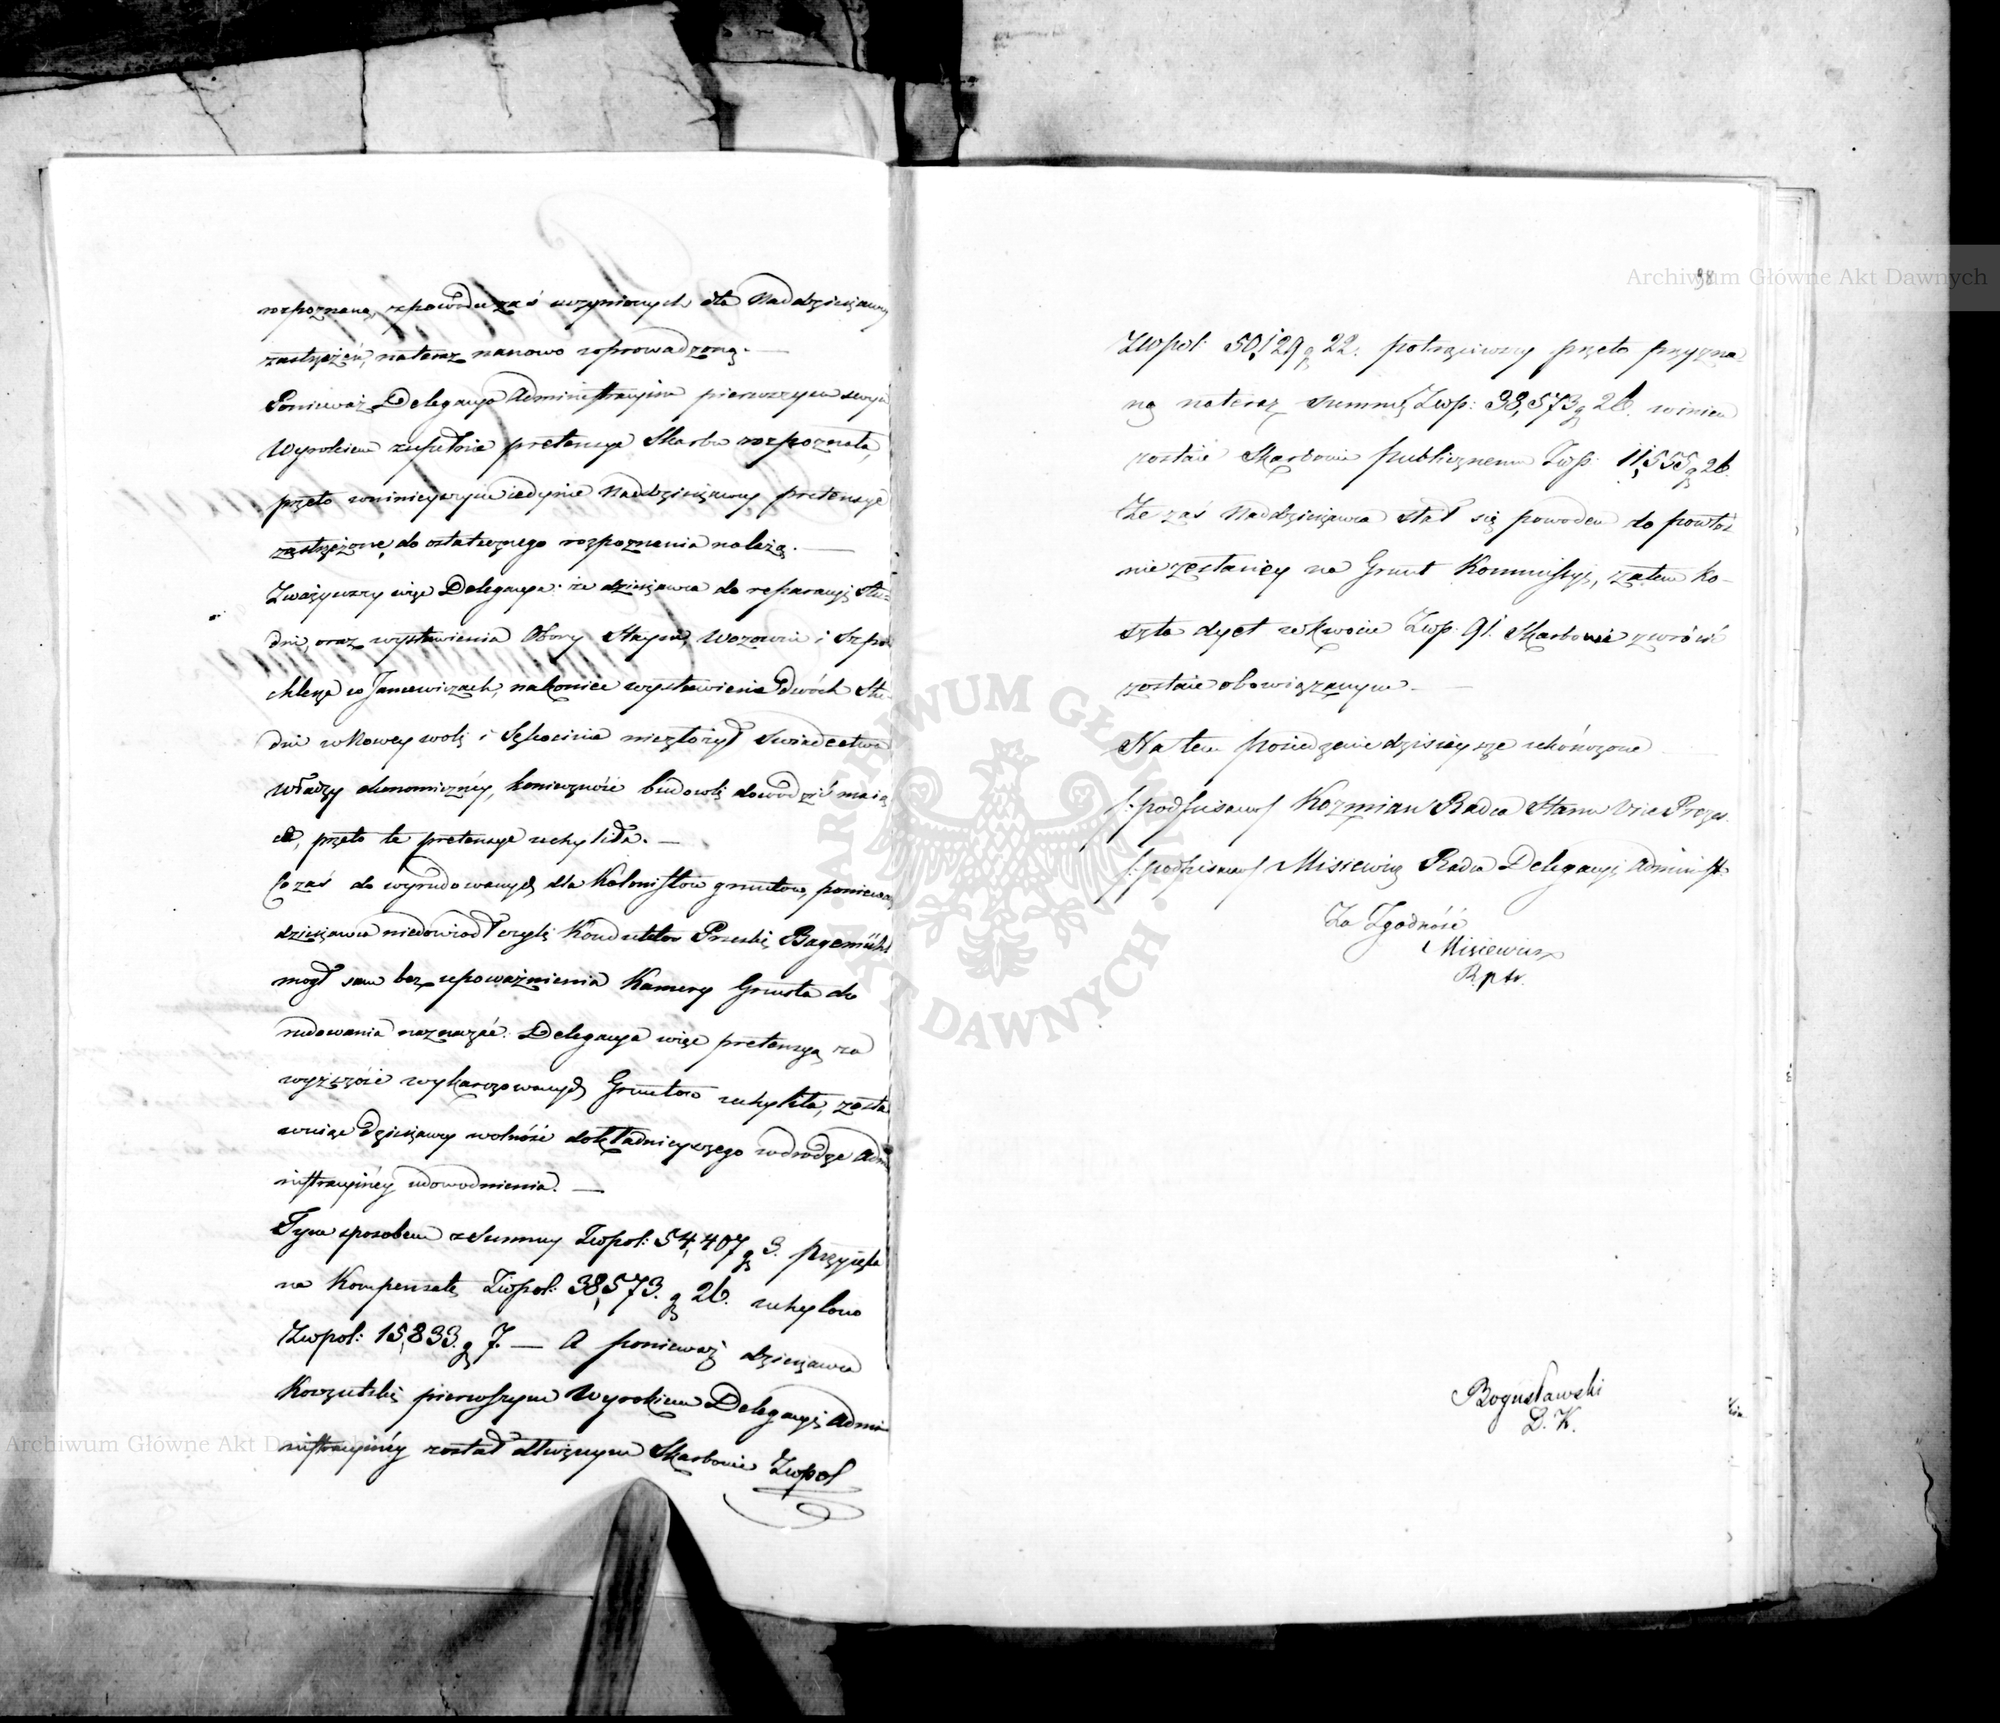 rozpoznaną, zpowodu zaś uczynionych dla Naddzierżawcy
zastrzeżeń, nateraz nanowo wprowadzoną. —
Ponieważ Delegacya Administracyina pierwszym swym
Wyrokiem zupełnie pretensye Skarbu rozpoznała,
przeto wninieyszym iedynie Naddzierżawcy pretensye
zastrzeżone, do ostatecznego rozpoznania należą. —
Zważywszy więc Delegacya: że dzierżawca do reparacyi stu-
dni, oraz wystawienia Obory Stayni, Wozowni i Szpi
chlerza w Janiewiczach, nakoniec wystawienia dwóch Stu-
dni w Nowey woli i Sękocinie niezłożył świadectwa
Władzy ekonomiczney, konieczność budowli dowodzić maią
ce, przeto te pretensye uchyliła. —
Co zaś do wyrudowanych dla Kolonistów gruntów, ponieważ
dzierżawca niedowiodł czyli Konduktor Pruski Bagemühl
mógł sam bez upoważnienia Kamery Grunta do
rudowania naznaczać: Delegacya więc pretensyą za
wyższość wykarczowanych Gruntów uchyliła, zosta
wuiąc dzierżawcy wolność dokładnieyszego w drodze Admi
nistracyiney udowodnienia. —
Tym sposobem z Summy Zwpol: 54,407 g 3. przyięto
na Kompensatę Zwpol: 38,573. g 26. uchylono
Zwpol: 15,833. g 7. — A ponieważ dzierżawca
pierwszym Wyrokiem Delegacyi Admi
nistracyiney został dłużnym Skarbowi Zwpol
98
Zwpol: 50,129 g 22. potrąciwszy przeto przyzna
ną nateraz Summę Zwp: 38,573 g 26. winien
zostaie Skarbowi publicznemu Zwp: 11,555 g 26.
Że zaś Naddzierżawca stał się powodem do powtór
nie zesłaney na Grunt Kommissyi, zatem ko-
szta dyet w kwocie Zwp: 91. Skarbowi zwrócić
zostaie obowiązanym. —
Na tem posiedzenie dzisieysze ukończono —
/: podpisano :/ Kozmian Radca Stanu Vice Prezes.
/: podpisano :/ Misiewicz Radca Delegacyi Administ:
Za Zgodność
Misiewicz
Bogusławski
D. K.
Archiwum Główne Akt Dawnych
Archiwum Główne Akt Dawnych
ARCHIWUM GŁÓWNE AKT DAWNYCH